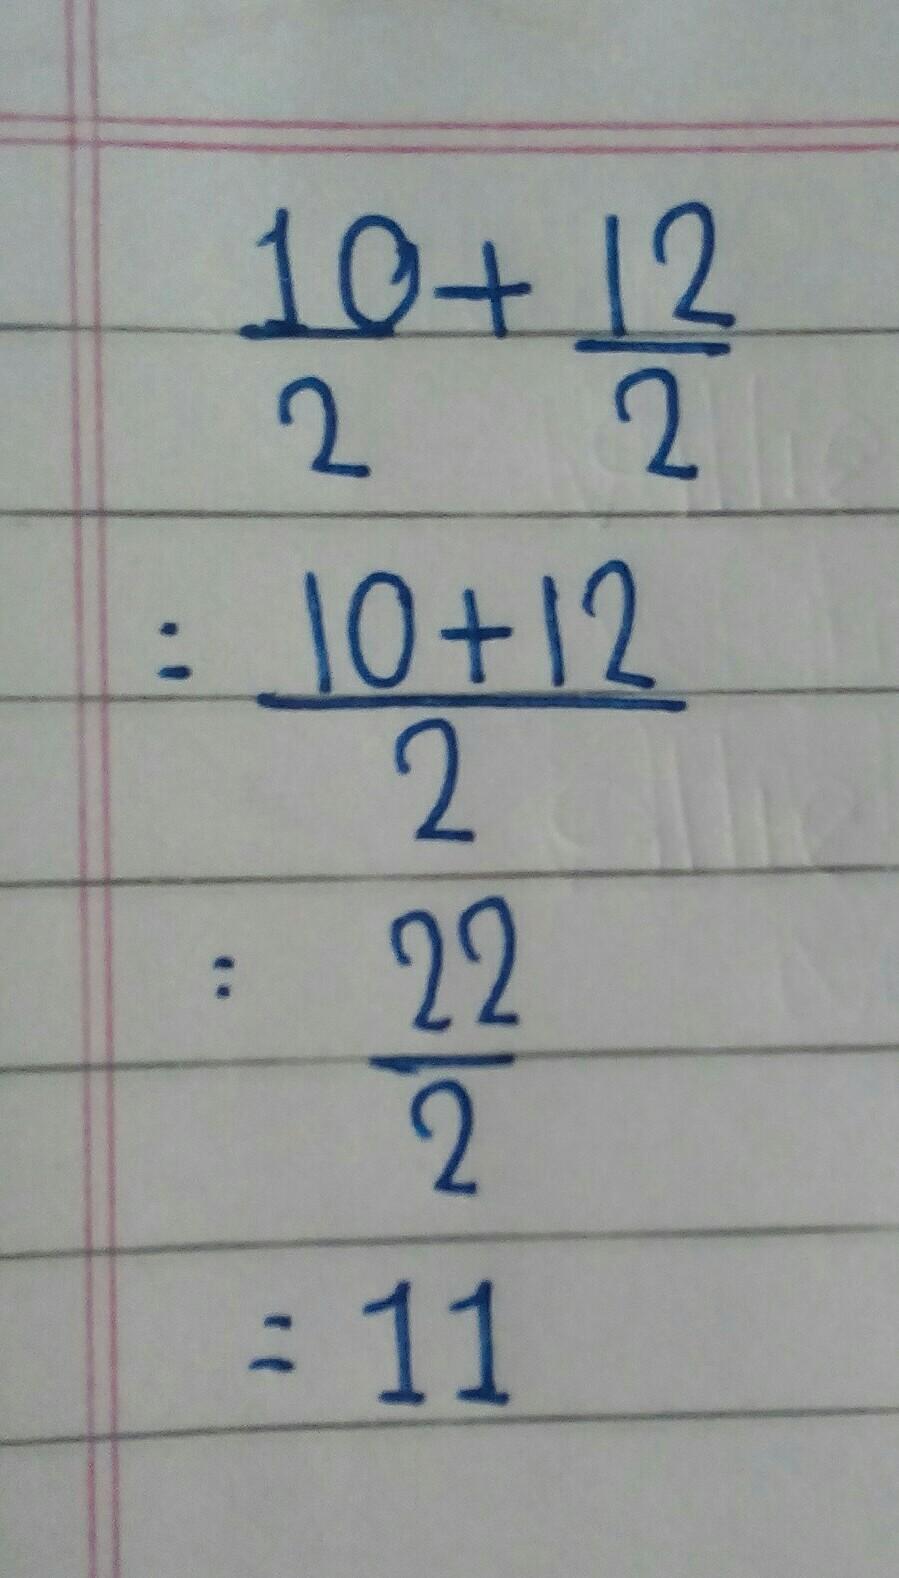 10/2 + 12/2
= (10+12)/2
= 22/2
= 11